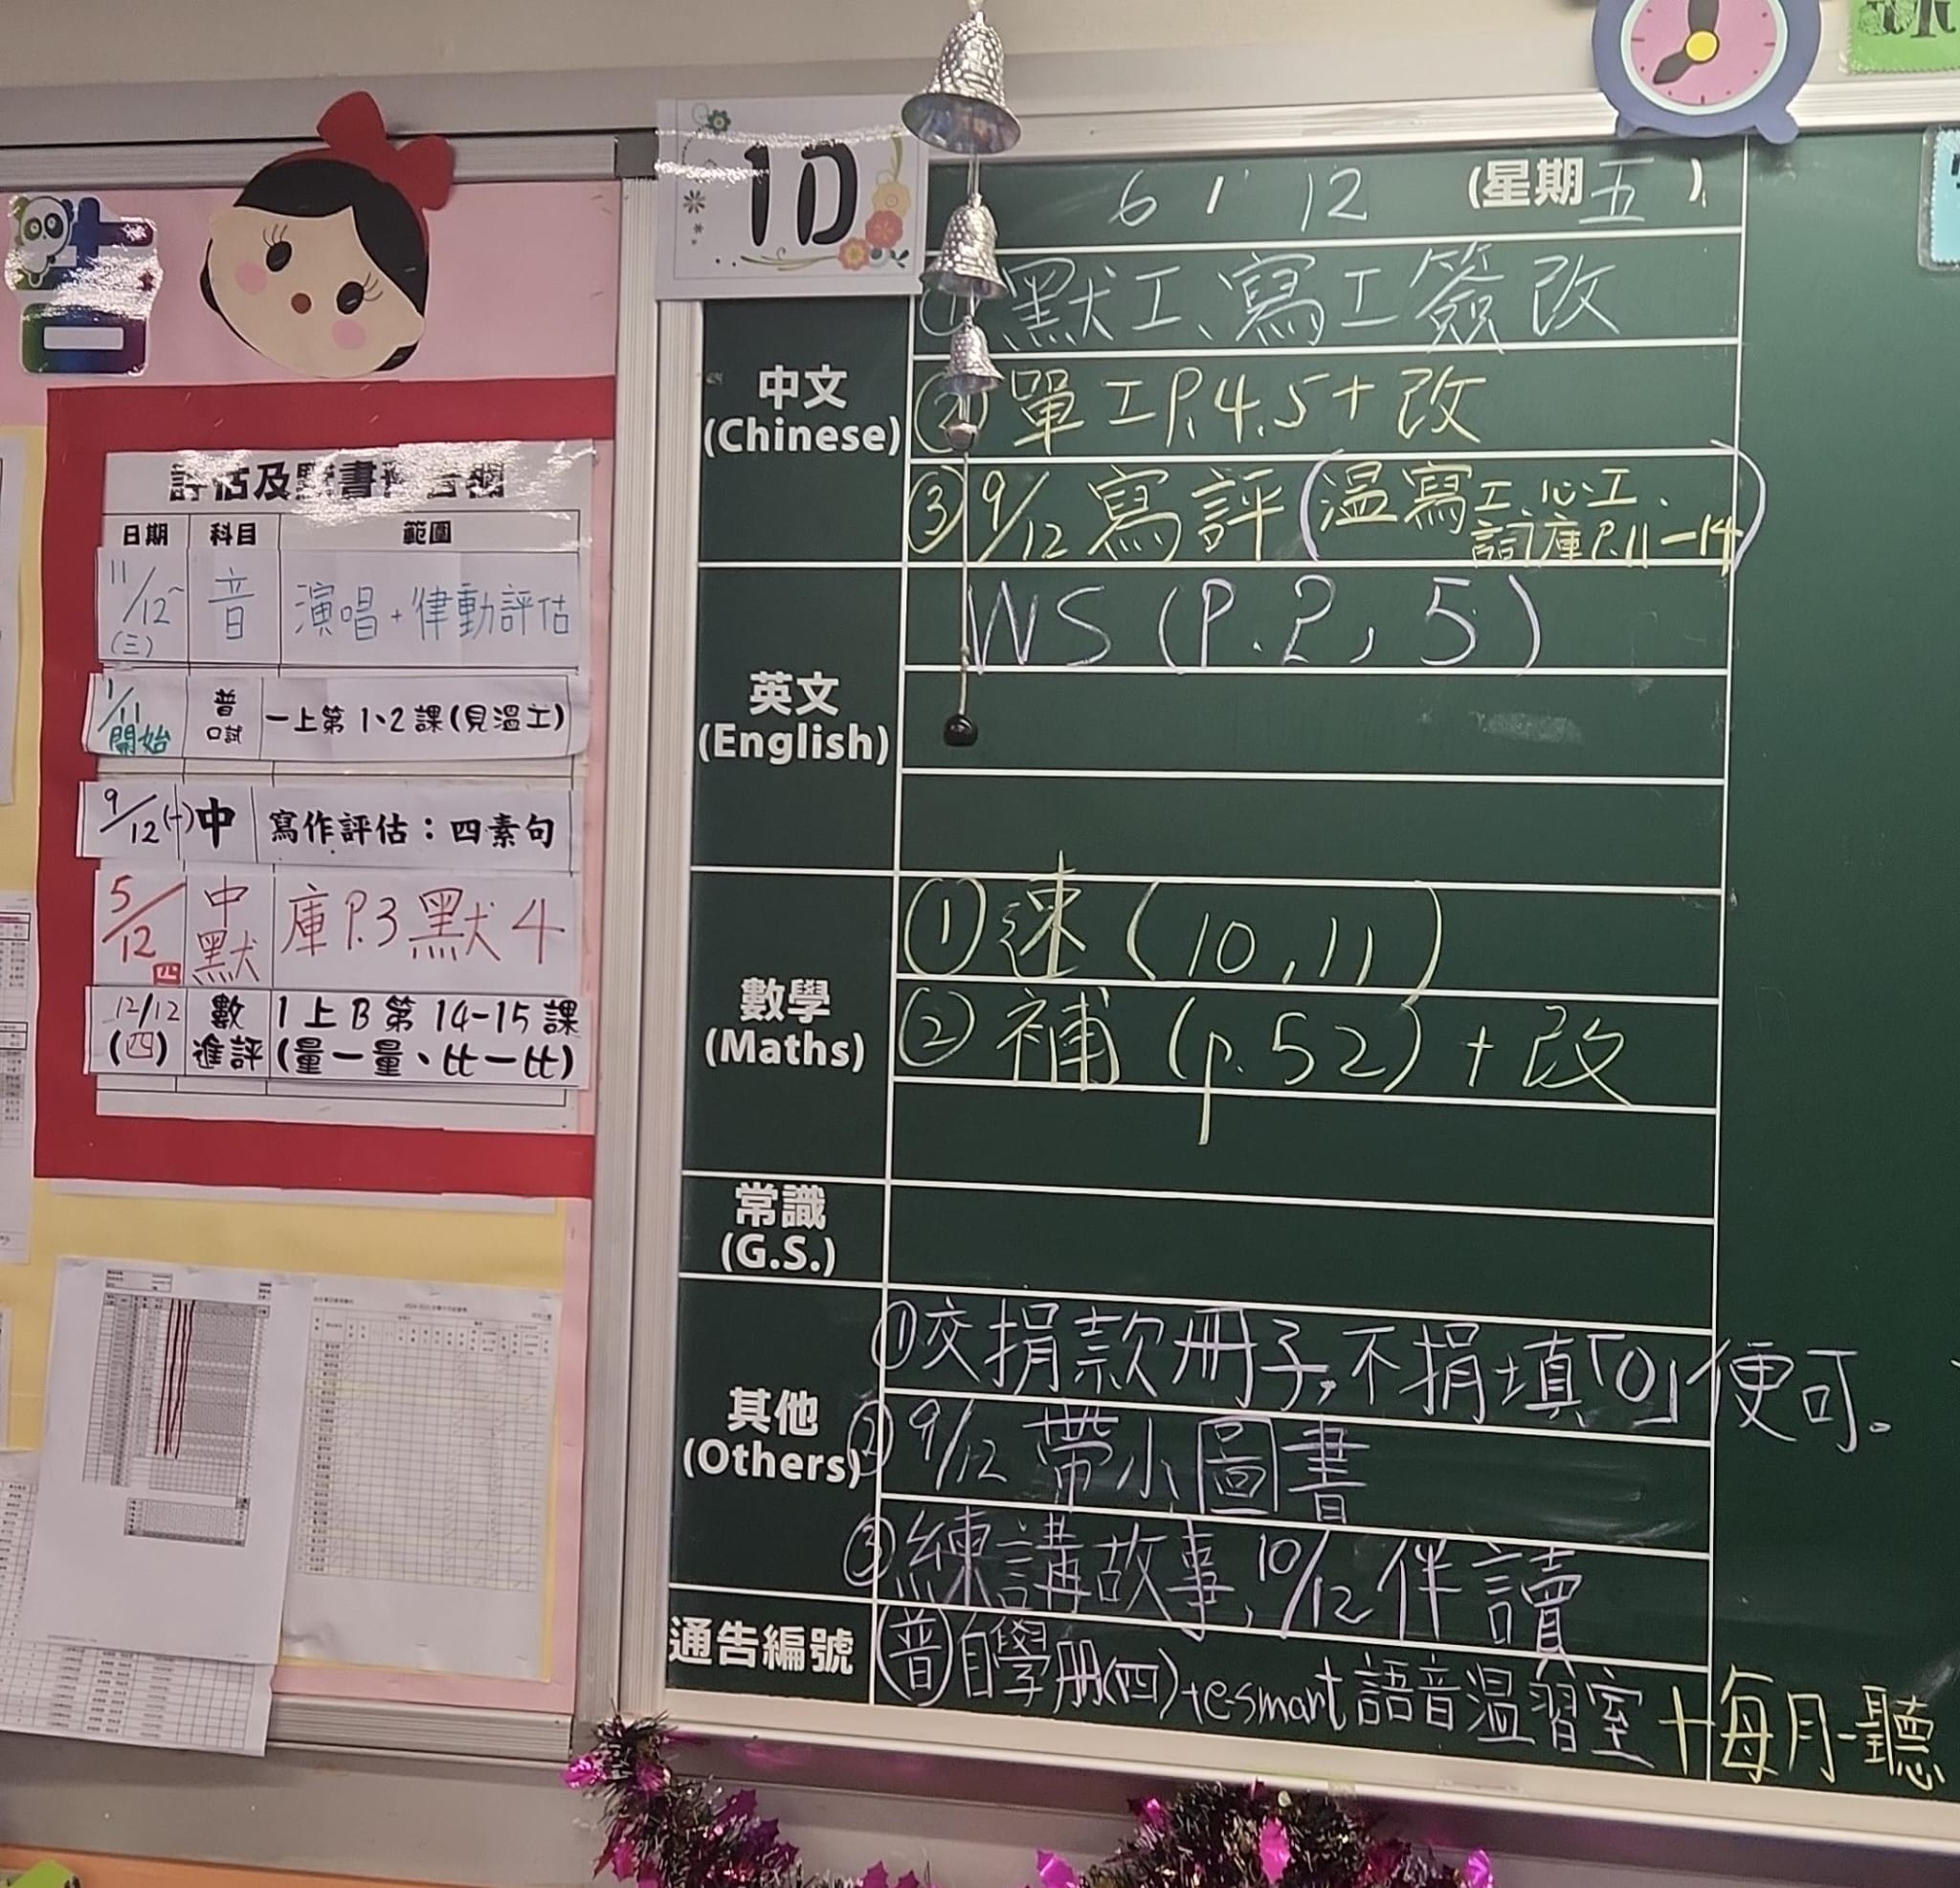 評估及默書報告欄
日期 科目 範圍
11/12~ (三) 音 演唱+律動評估
1/11開始 普口試 一上第1、2課(見溫工)
9/12(一) 中 寫作評估：四素句
5/12 四 中默 庫P.3默4
12/12(四) 數進評 1上B第14-15課(量一量、比一比)
1D
6 / 12 (星期五)
中文(Chinese)
①默工、寫工簽改
②單工P.4,5+改
③9/12寫評(溫寫工、心工、詞庫P.11-14)
英文(English)
WS (P.2, 5)
數學(Maths)
①速(10,11)
②補(p.52)+改
常識(G.S.)
其他(Others)
①交捐款冊子,不捐填「0」便可。
②9/12帶小圖書
③練講故事,10/12伴讀
通告編號
(普)自學册(四)+e-smart語音溫習室+每月一聽